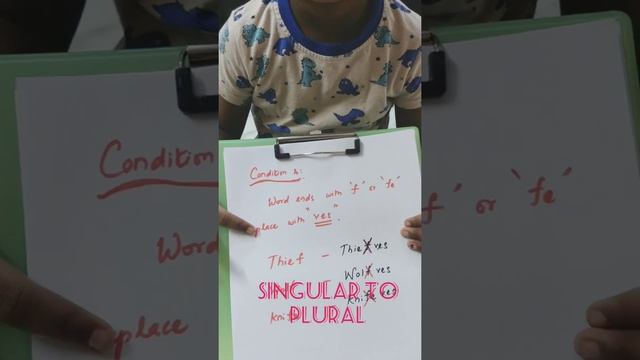 Condition 4:
Word ends with 'f' or 'fe'
place with "ves".
Thief - Thief ves
Wolf ves
Knife ves
Knife
SINGULAR TO
PLURAL
Condition
f' or 'fe'
Word
place